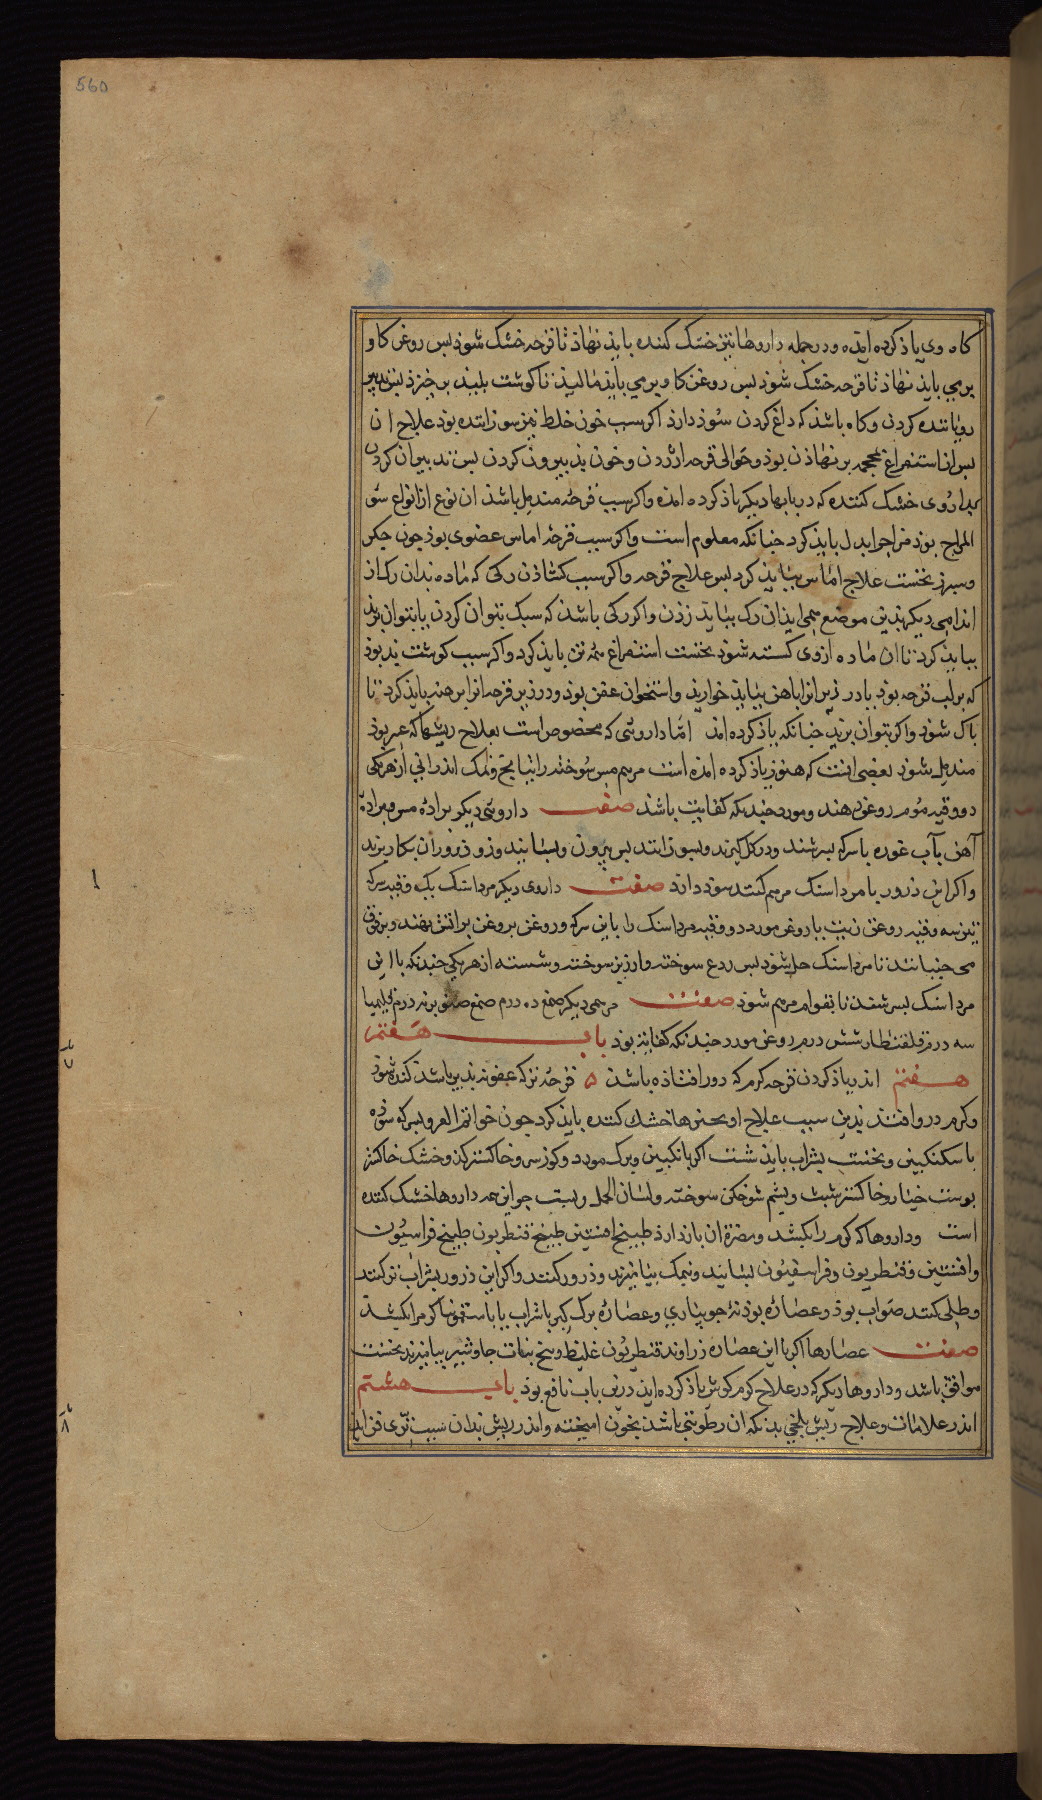 560
کاه وی یاذ کرده آمذه ودر جمله داروها نیز خشک کننده بایذ نهاذ تا قرحه خشک شوذ بس روغن کاو
برمی بایذ نهاذ تا قرحه خشک شوذ بس روغن کاو برمی بایذ مالیذ تا کوشت بلیذ برخیزذ بس تدبیر
رویاننده کردن وکاه باشذ که داغ کردن سوذ دارذ اکر سبب خون خلط تیز سوزاننده بوذ علاج ان
بس از استفراغ محجمه برنهاذن بوذ وحوالی قرحه ازدن وخون بذ بیرون کردن بس تدبیر ان کردن
بداروی خشک کننده که در بابها دیکر یاذ کرده امذه واکر سبب قرحه مندمل باشذ ان نوع از انواع سو
المزاج بوذ مزاج را بدل بایذ کرد جنانکه معلوم است واکر سبب قرحه اماس عضوی بوذ جون جکر
وسبرز نخست علاج اماس ببایذ کرد بس علاج قرحه واکر سبب کشاذن رکی که ماده بذان رک از
اندامی دیکر بذین موضع همی ایذ ان رک ببایذ زذن واکر رکی باشذ که سبک بتوان کردن یا بتوان بریذ
ببایذ کرد تا ان ماده ازوی کسسته شوذ نخست استفراغ همه تن بایذ کرد واکر سبب کوشت بذ بوذ
که بر لب قرحه بوذ یا در زیر انرا باهن ببایذ خواریذ واستخوان عفن بوذ ودر زیر قرحه انرا برهنه بایذ کرد تا
باک شوذ واکر بتوان بریذ جنانکه یاذ کرده امذ اما داروئی که مخصوص است بعلاج ریشها که عسر بوذ
مندمل شوذ بعضی انست که هنوز یاذ کرده امذه است مرهم مس سوخته راتیانج ونمک اندرانی از هر یکی
دو وقیه موم روغن دهند ومورد جندانکه کفایت باشذ صفت داروئی دیکر براذه مس وبراذه
آهن بآب غوره یا سرکه بسرشند ودر کل کیرند وبسوزانند بس بیرون وبسایند وزو ذرور ان بکار برند
واکر این ذرور با مرداسنک مرهم کنند سوذ دارذ صفت داروی دیکر مرداسنک یک وقیه سرکه
تیز سه وقیه روغن زیت یا روغن مورد دو وقیه مرداسنک را باین سرکه وروغن بر اتش نهند وبرفق
می جنبانند تا مرداسنک حل شوذ بس ردع سوخته وارزیز سوخته وشسته از هر یکی جندانکه با این
مرداسنک بسرشند تا بقوام مرهم شوذ صفت مرهمی دیکر صمغ ده درم صمغ صنوبر نه درم اقلیمیا
سه درم قلقنطار شش درم روغن مورد جندانکه کفایة بوذ باب هفتم
هفتم اندر یاذ کردن قرحه کرم که دور افتاذه باشذ ۵ قرحه تر که عفونة بذیر باشذ کنده شوذ
وکرم در وافتذ بذین سبب علاج او بجیزها خشک کننده بایذ کرد جون خواتم العروس که سوذه
با سکنکبین ونخست بشراب بایذ شست اکر بانکبین وبرک مورد وکوز سرو خاکستر کذو خشک خاکستر
بوست خیار وخاکستر شبث وبشم شوخکن سوخته ولسان الحمل وبست جو این همه داروها خشک کننده
است وداروها که کرم را بکشذ ومضرة ان بازدارذ طبیخ افسنتین طبیخ قنطریون طبیخ فراسیون
وافسنتین وقنطریون وفراسیون بسایند ونمک بیامیزند وذرور کنند واکر این ذرور بشراب تر کنند
وطلی کنند صواب بوذ وعصاره بوذنه جویباری وعصاره برک کبر باشراب یا با سقمونیا کرم را بکشذ
صفت عصارها اکر با این عصاره زراوند قنطریون غلیظ وبیخ نبات جاوشیر بیامیزند نخست
موافق باشذ وداروها دیکر که در علاج کرم کوش یاذ کرده ایذ درین باب نافع بوذ باب هشتم
اندر علامات وعلاج ریش بلخی بذانکه ان رطوبتی باشذ بخون امیخته واندر ریش بذان سبب تری فزایذ